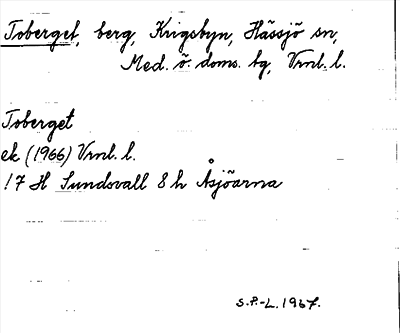 Toberget, berg, Krigsbyn, Hässjö sn,
Med. ö. doms. tg, Vrnl. l.
Toberget
ek (1966) Vrnl. l.
17 H Sundsvall 8 h Åsjöarna
S.P.-L. 1967.